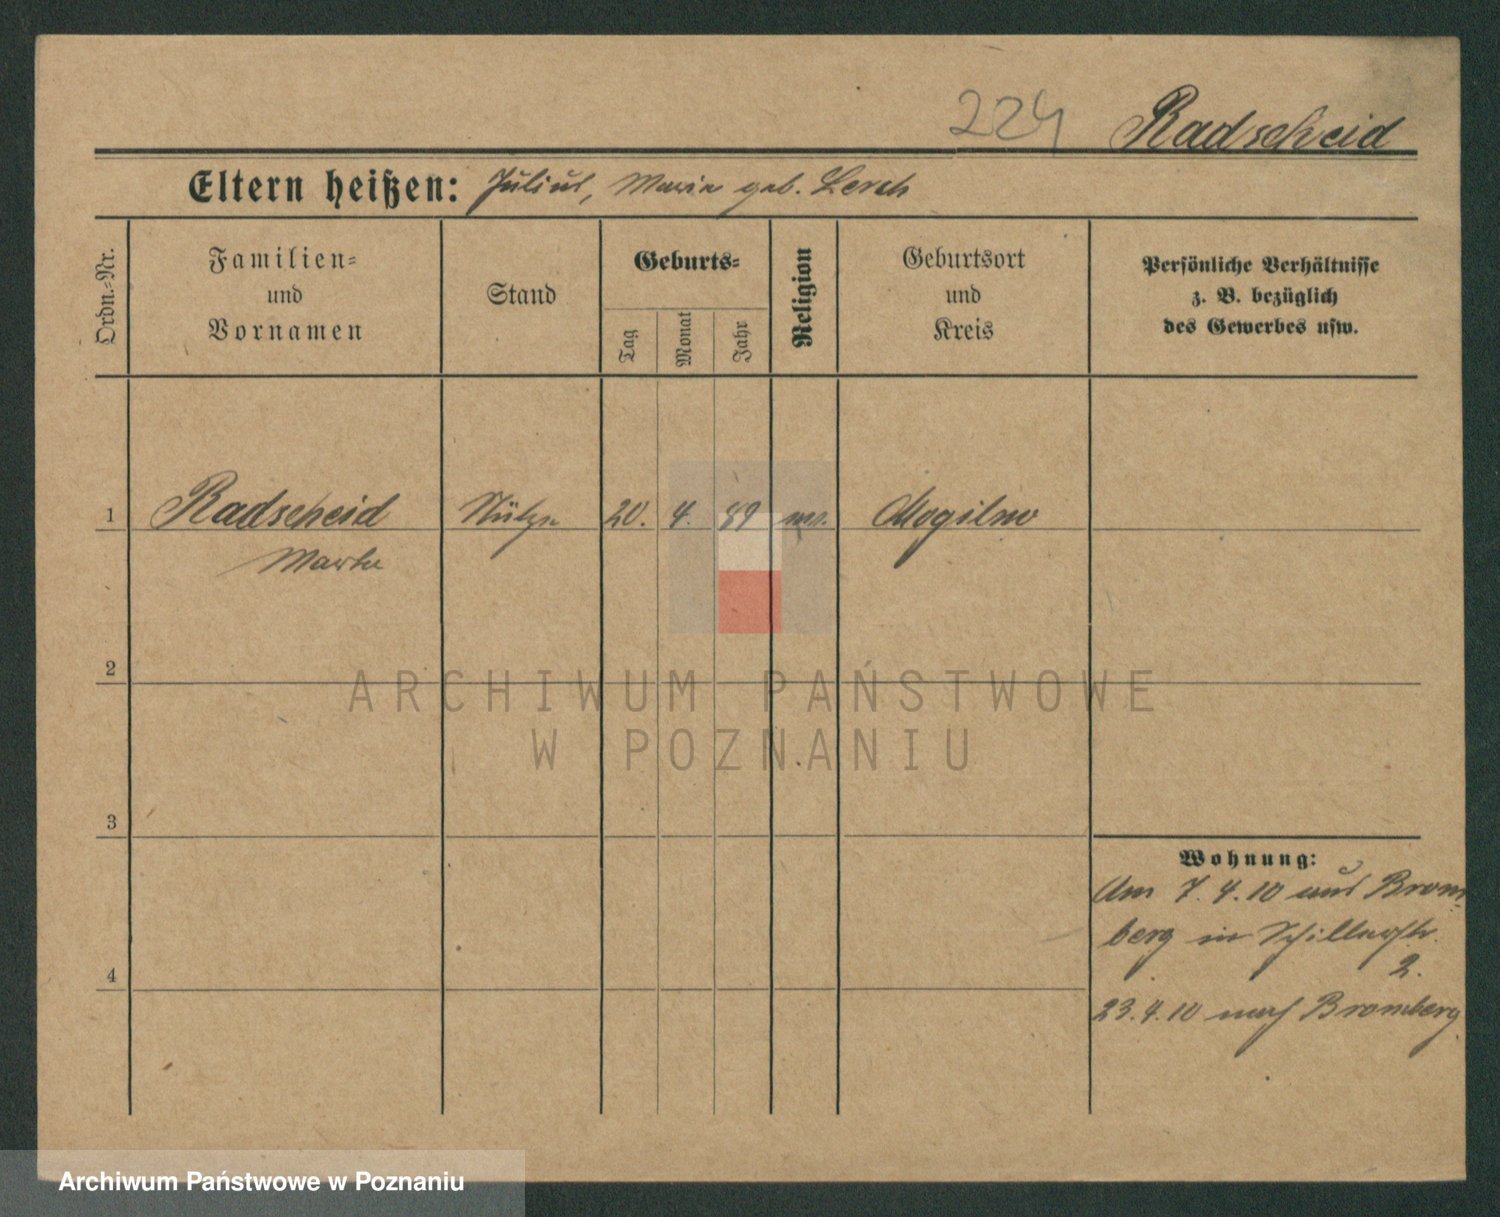 224 Radscheid
Eltern heißen: Julius, Maria geb. Lersch
Ordn.-Nr.
Familien-
und
Vornamen
Stand
Geburts-
Tag
Monat
Jahr
Religion
Geburtsort
und
Kreis
Persönliche Verhältnisse
z. B. bezüglich
des Gewerbes usw.
1 Radscheid Stütze 20. 4. 89 Mogilno
Martha
2
ARCHIWUM PAŃSTWOWE
W POZNANIU
3
Wohnung:
Am 7.4.10 aus Brom-
berg in Schillerstr.
2.
4
23.4.10 nach Bromberg
Archiwum Państwowe w Poznaniu